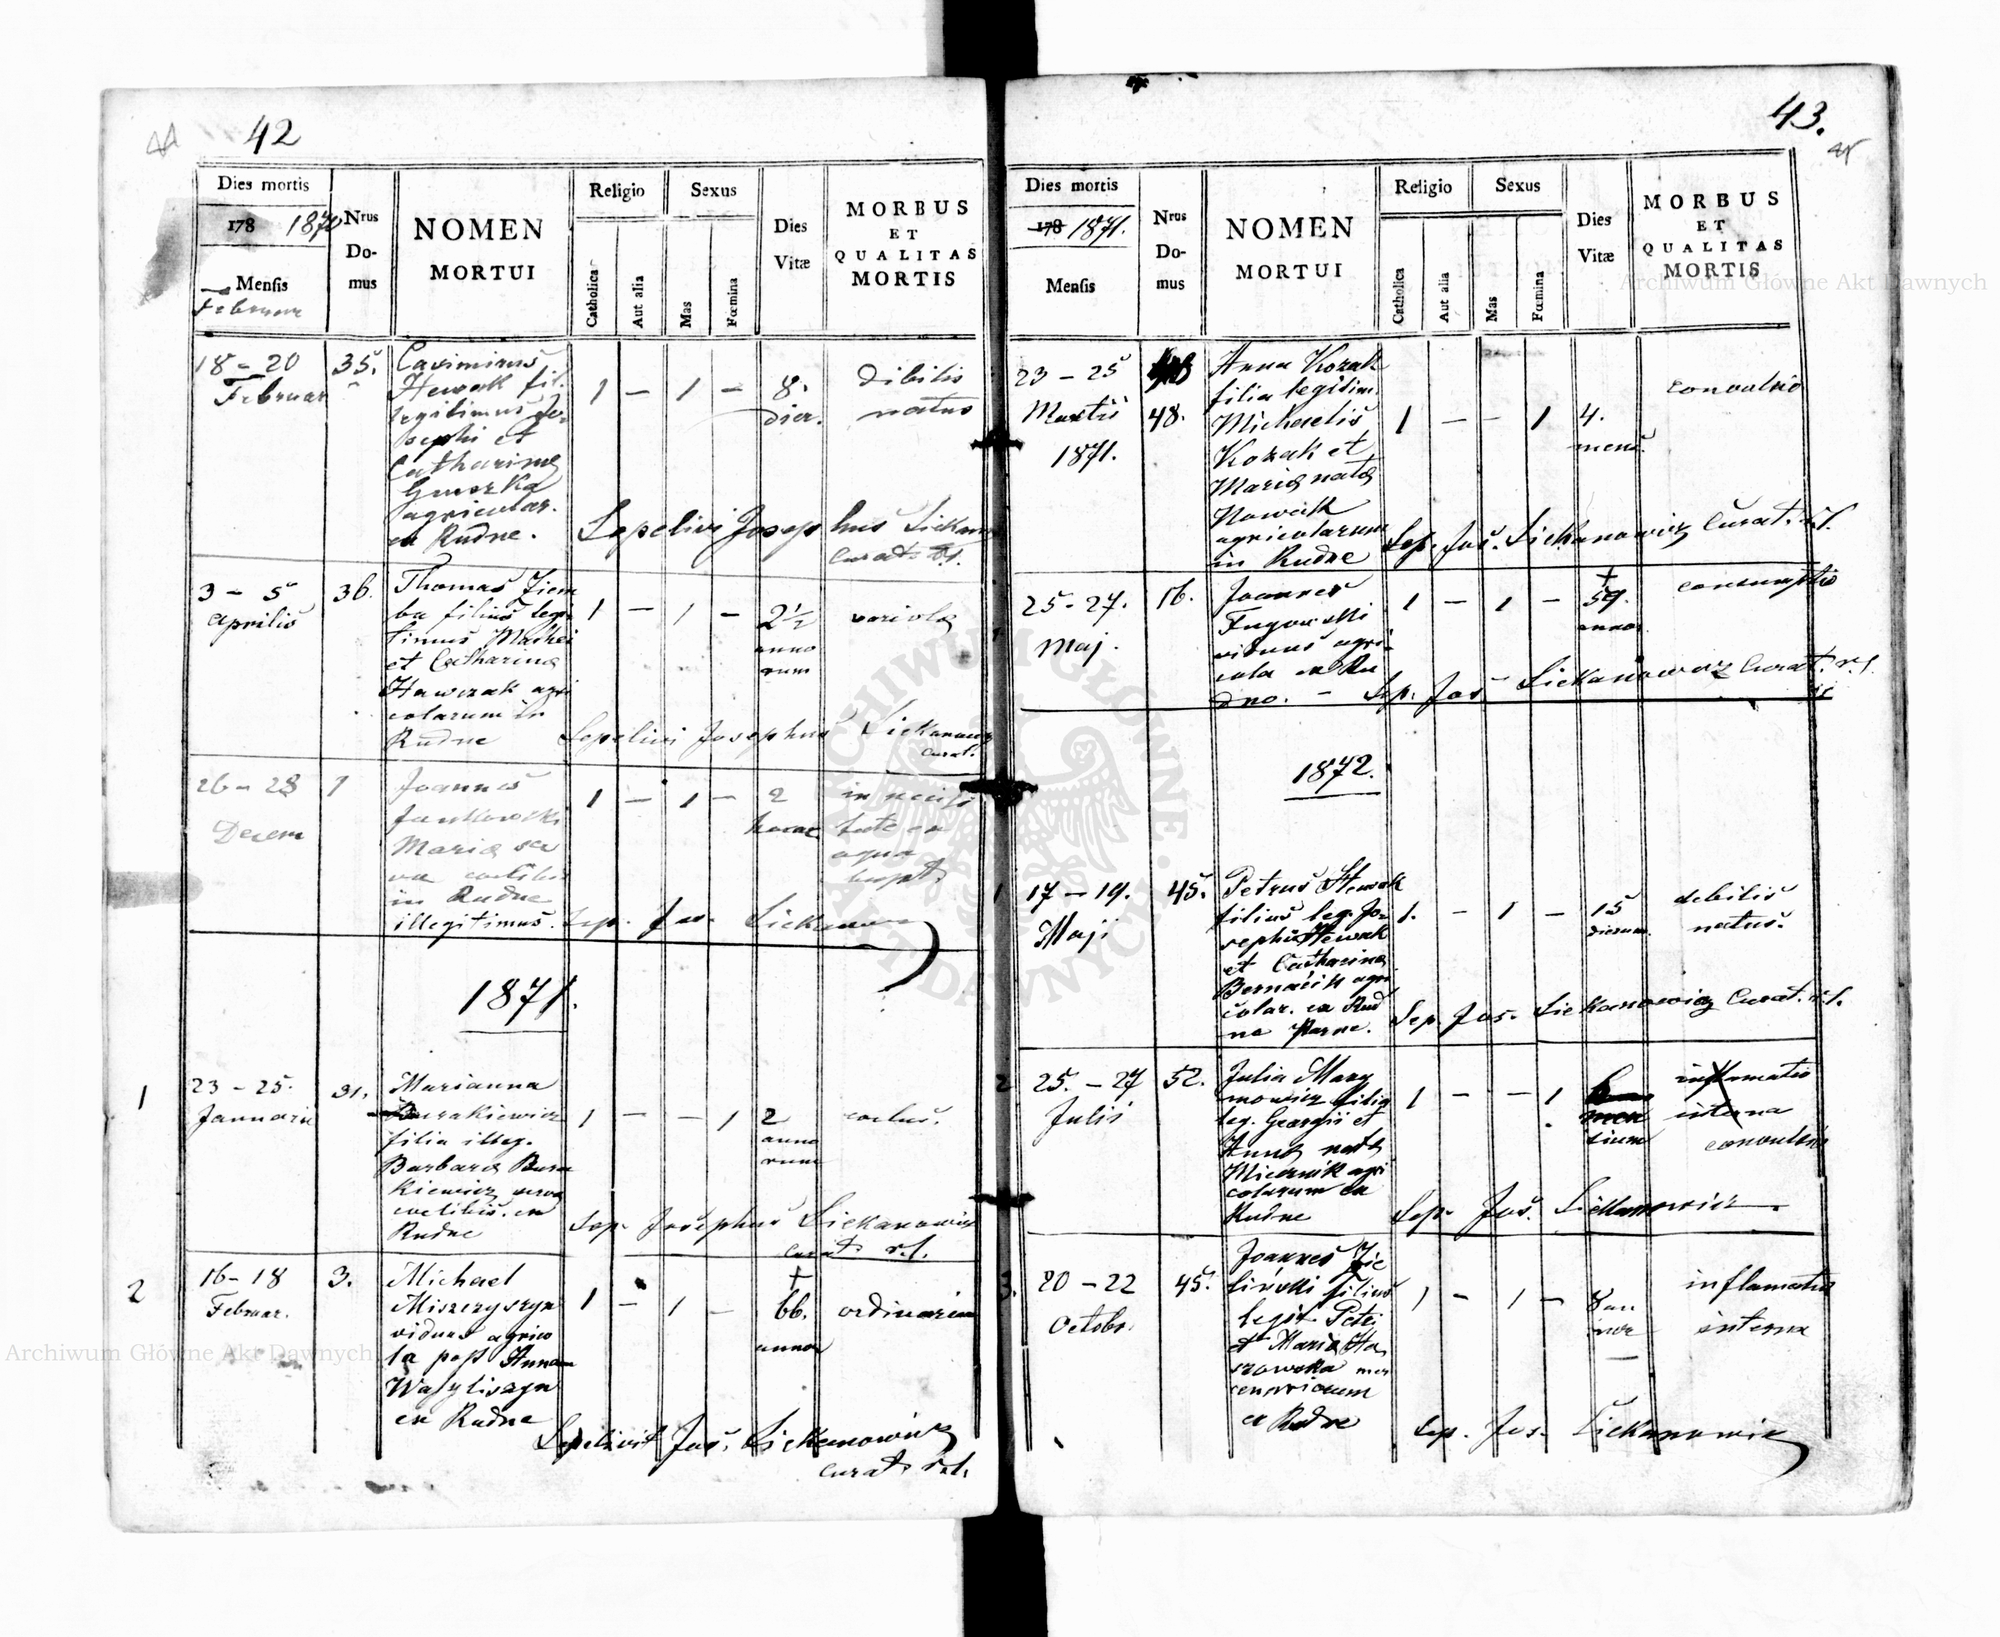 42
Dies mortis
178 1870
Mensis
Februar
Nrus
Do-
mus
NOMEN
MORTUI
Religio
Catholica
Aut alia
Sexus
Mas
Fœmina
Dies
Vitæ
MORBUS
ET
QUALITAS
MORTIS
18 - 20
Februar
35.
Casimirus
Hewak fil.
legitimus Jo-
sephi et
Catharinæ
Gruszka
agricolar.
ex Rudne.
1 - 1 -
8.
dier.
debilis
natus
Sepelivi Josephus Siekanow
Curat. r.l.
3 - 5
Aprilis
36.
Thomas Ziem
ba filius legi
timus Mathei
et Catharina
Hawczak agri
colarum in
Rudne
1 - 1 -
2½
anno
rum
variolæ
Sepelivi Josephus Siekanowicz
Curat.
26 - 28
Decem
1
Joannes
Jankowski
Mariæ ser
væ cœlibis
in Rudne
illegitimus.
1 - 1 -
2
horæ
in necessi
tate ex
aqua
bapt.
Sep. Jos. Siekanow
1871.
1
23 - 25.
Januarii
31.
Marianna
Burakiewicz
filia illeg.
Barbaræ Bura
kiewicz serva
cœlibis. ex
Rudne
1 - - 1
2
anno
rum
Sep. Josephus Siekanowicz
Curat. r.l.
2
16 - 18
Februar.
3.
Michael
Miszczyszyn
viduus agrico
la post Annam
Wasyliszyn
ex Rudne
1 - 1 -
+
66.
annor
ordinaria
Sepelivit Jos. Siekanowicz
Curat. r.l.
43.
Dies mortis
178 1871.
Mensis
Nrus
Do-
mus
NOMEN
MORTUI
Religio
Catholica
Aut alia
Sexus
Mas
Fœmina
Dies
Vitæ
MORBUS
ET
QUALITAS
MORTIS
23 - 25
Martii
1871.
48.
Anna Kozak
filia legitim.
Michaelis
Kozak et
Mariæ natæ
Nowak
agricolarum
in Rudne
1 - - 1
4.
mens.
convulsio
Sep. Jos. Siekanowicz Curat. r.l.
25 - 27.
Maj.
16.
Joannes
Fugowski
viduus agri-
cola ex Ru
dno. -
1 - 1 -
+
59.
annor
consumptio
Sep. Jos. Siekanowicz Curat. r.l.
1872.
1
17 - 19.
Maji
45.
Petrus Hewak
filius leg. Jo-
sephi Hewak
et Catharinæ
Bernacik agri
colar. ex Rud
ne Parne.
1. - 1 -
15
dierum.
debilis
natus.
Sep. Jos. Siekanowicz Curat. r.l.
2
25. - 27
Julii
52.
Julia Mary
nowicz filia
leg. Georgii et
Annæ natæ
Miernik agri
colarum ex
Rudne
1 - - 1
men
sium
inflamatio
interna
convulsio
Sep. Jos. Siekanowicz
3.
20 - 22
Octobr.
45.
Joannes Zie
liński filius
legit Petri
et Mariæ Ha
szowska mer
cenariorum
ex Rudne
1 - 1 -
8 an
nor
inflamatio
interna
Sep. Jos. Siekanowicz
Archiwum Główne Akt Dawnych
Archiwum Główne Akt Dawnych
ARCHIWUM GŁÓWNE AKT DAWNYCH